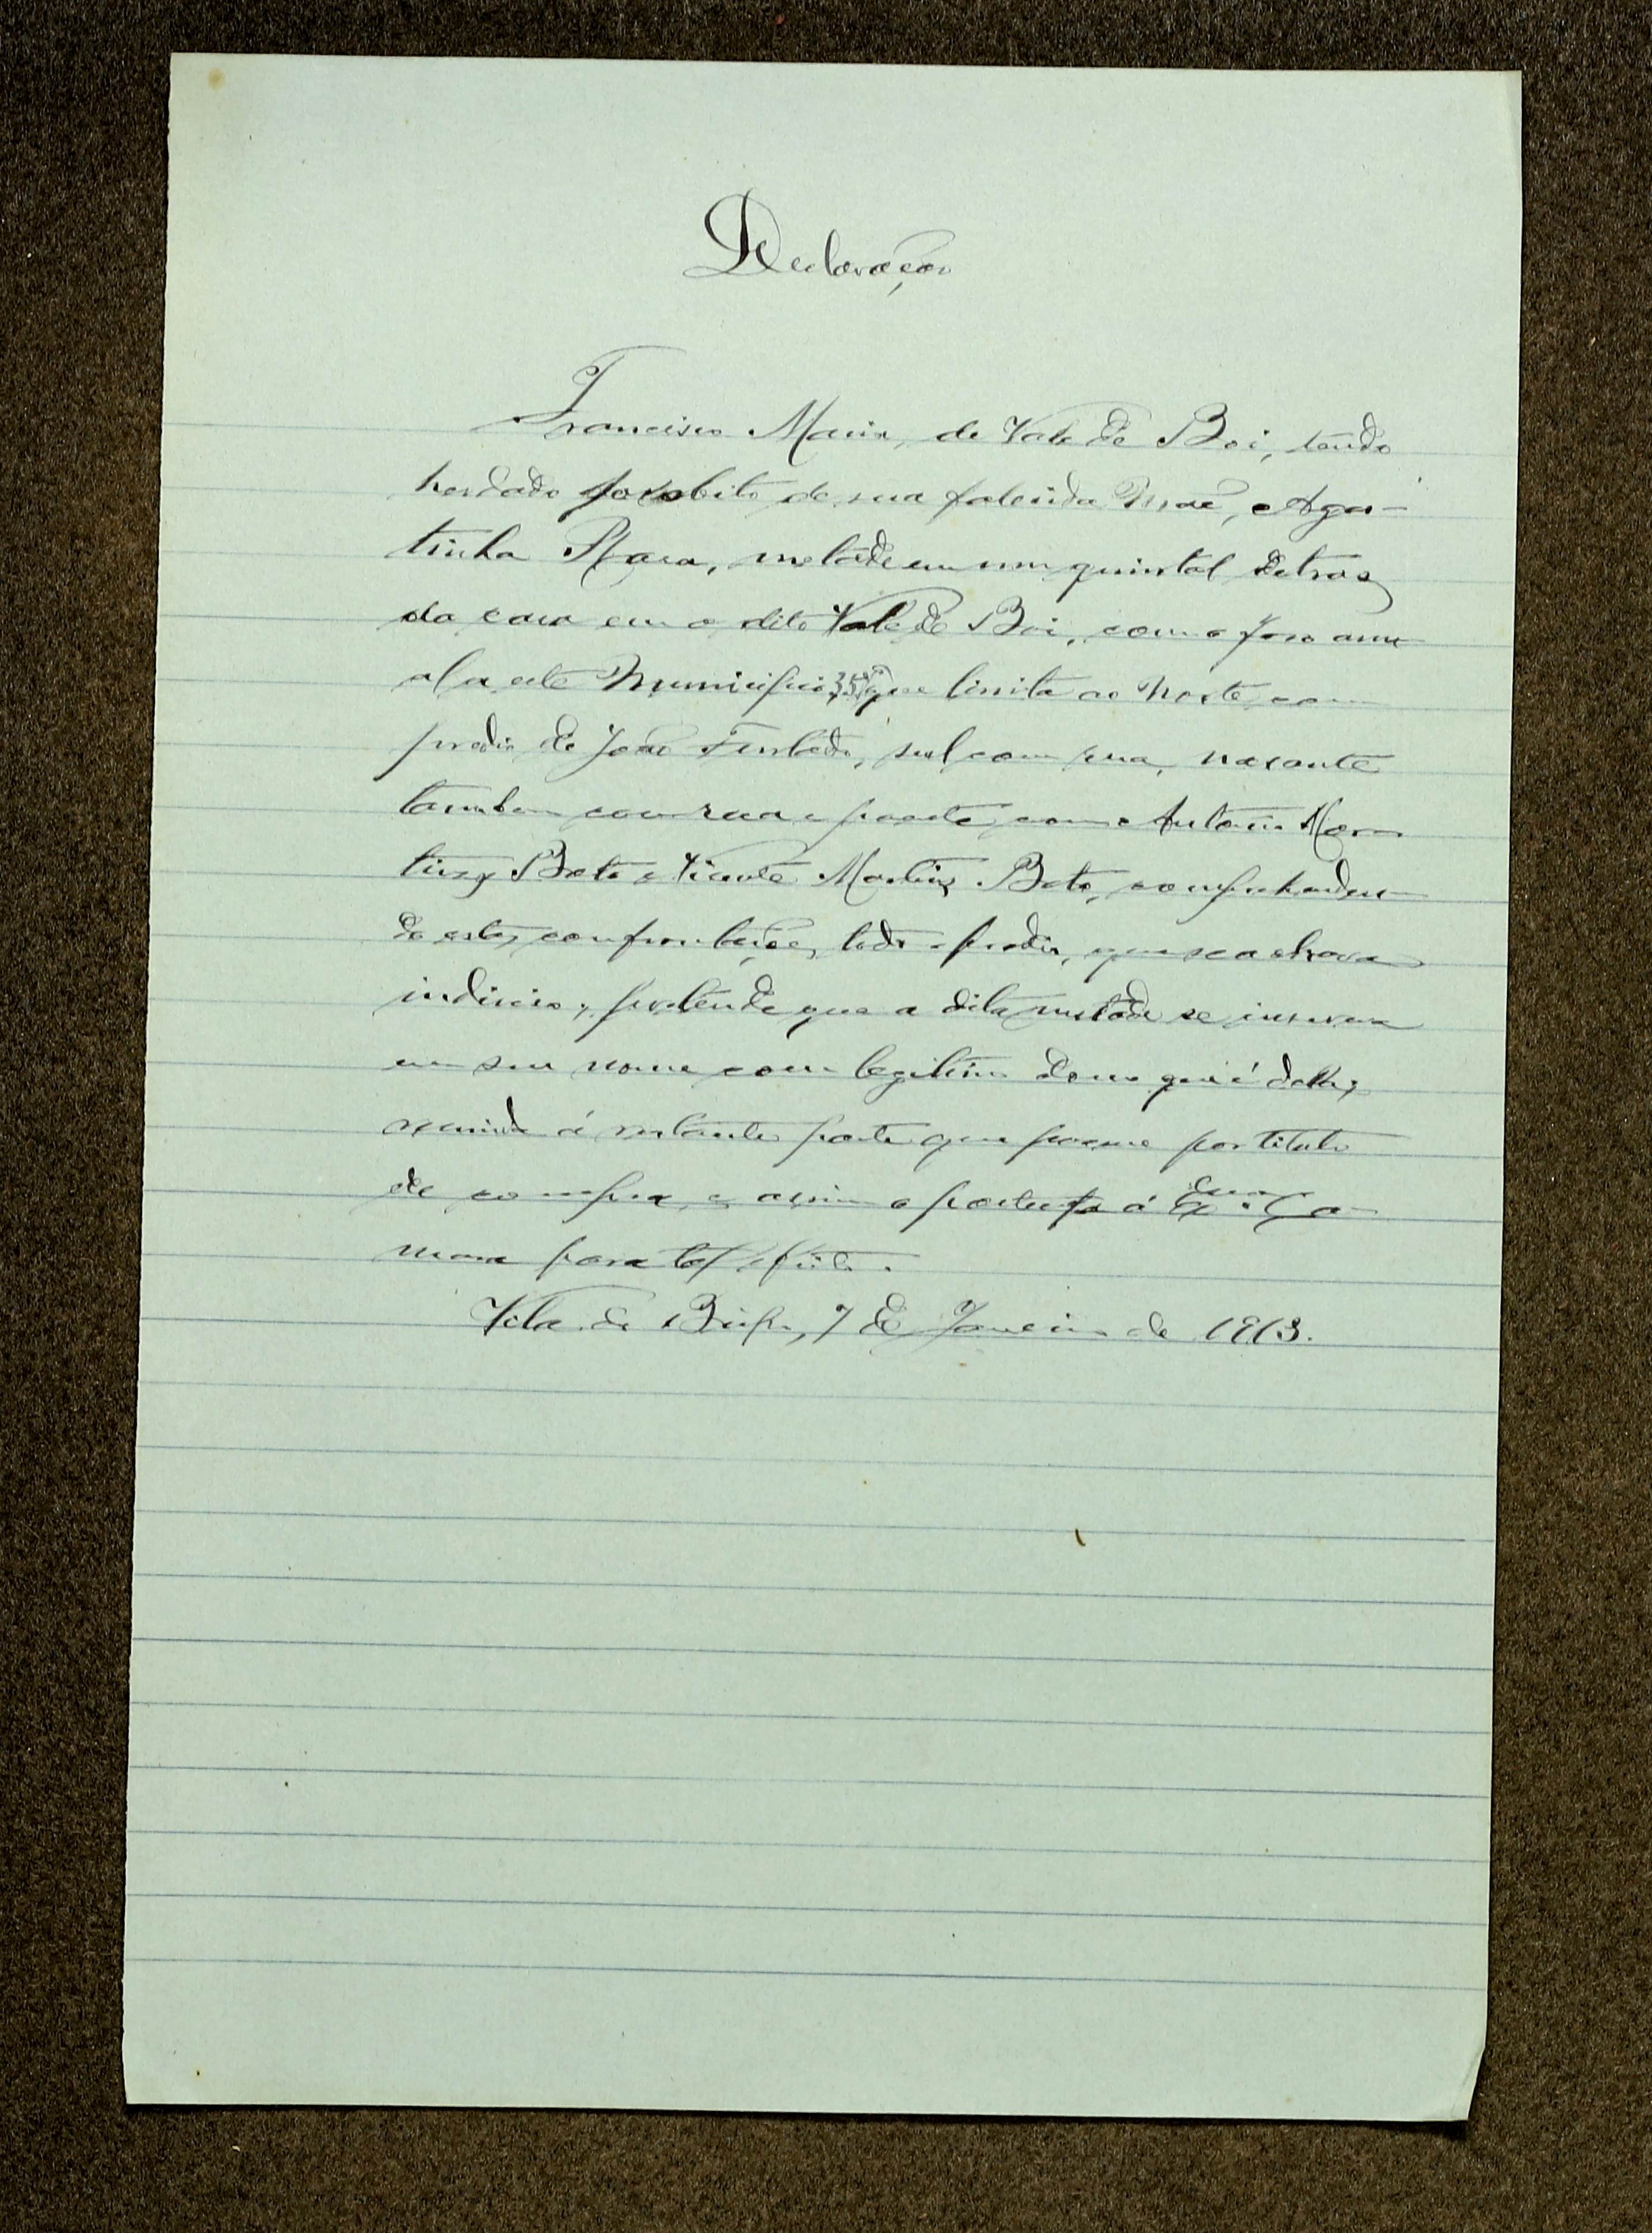 Declaração
Francisco Maria, de Vale de Boi, tendo
herdado por obito de sua falecida Mãe, Aga-
tinha Rosa, metade em um quintal detras
da casa em o dito Vale de Boi, com o foro anu
al a este Municipio, 35 que limita ao Norte com
predio de João Furtado, sul com rua, nascente
tambem com rua e poente com Antonio Mar
tins Beto e Vicente Martins Beto, comprehenden
do estas confrontações todo o predio, que se achava
indiviso; pretende que a dita metade se inscreva
em seu nome com legitimo dono que é della,
reunida á restante parte que possue por titulo
de compra, e assim o participa á Exma. Ca
mara para tal efeito.
Vila do Bispo, 7 de Janeiro de 1913.